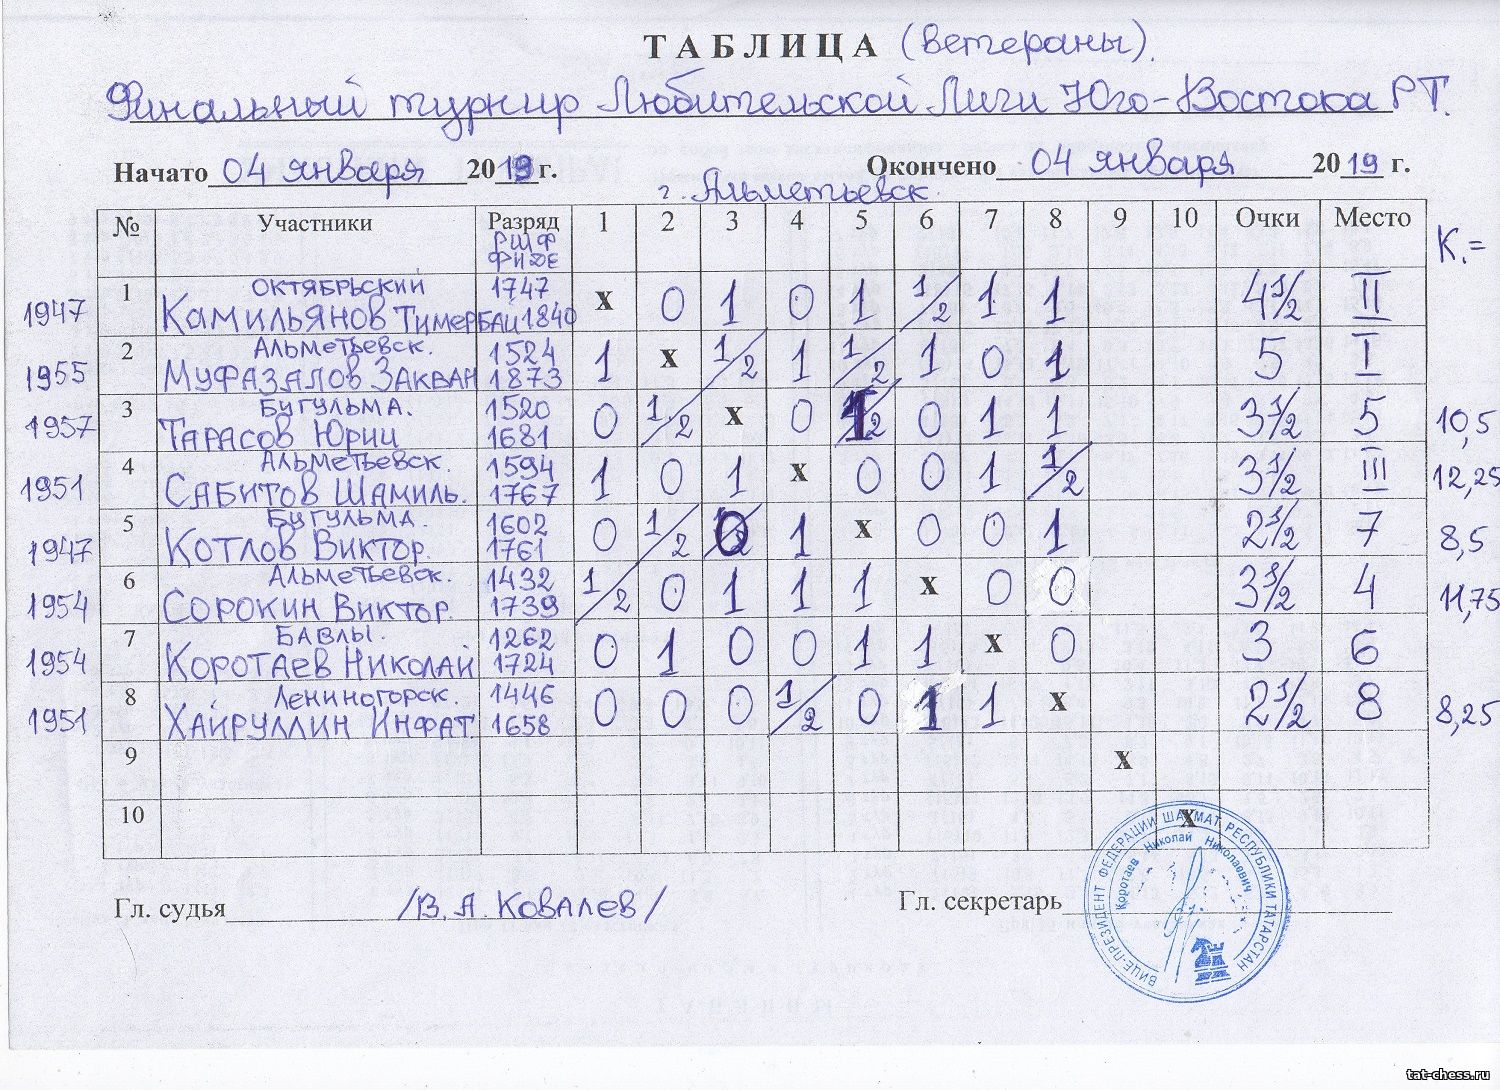 ТАБЛИЦА (ветераны).
Финальный турнир Любительской Лиги Юго-Востока РТ.
Начато 04 января 2019 г. Окончено 04 января 2019 г.
г. Альметьевск.
№ Участники Разряд РШФ ФИДЕ 1 2 3 4 5 6 7 8 9 10 Очки Место К.=
1 ОКТЯБРЬСКИЙ 1747
1947 КАМИЛЬЯНОВ ТИМЕРБАЙ 1840 х 0 1 0 1 1/2 1 1 4 1/2 II
2 АЛЬМЕТЬЕВСК. 1524
1955 МУФАЗАЛОВ ЗАКВАН 1873 1 х 1/2 1 1/2 1 0 1 5 I
3 БУГУЛЬМА. 1520
1957 ТАРАСОВ ЮРИЙ 1681 0 1/2 х 0 1 0 1 1 3 1/2 5 10,5
4 АЛЬМЕТЬЕВСК. 1594
1951 САБИТОВ ШАМИЛЬ. 1767 1 0 1 х 0 0 1 1/2 3 1/2 III 12,25
5 БУГУЛЬМА. 1602
1947 КОТЛОВ ВИКТОР. 1761 0 1/2 0 1 х 0 0 1 2 1/2 7 8,5
6 АЛЬМЕТЬЕВСК. 1432
1954 СОРОКИН ВИКТОР. 1739 1/2 0 1 1 1 х 0 0 3 1/2 4 11,75
7 БАВЛЫ. 1262
1954 КОРОТАЕВ НИКОЛАЙ 1724 0 1 0 0 1 1 х 0 3 6
8 ЛЕНИНОГОРСК. 1446
1951 ХАЙРУЛЛИН ИНФАТ. 1658 0 0 0 1/2 0 1 1 х 2 1/2 8 8,25
9 х
10 х
Гл. судья /В. А. КОВАЛЕВ/ Гл. секретарь
ВИЦЕ-ПРЕЗИДЕНТ ФЕДЕРАЦИИ ШАХМАТ РЕСПУБЛИКИ ТАТАРСТАН
Коротаев Николай Николаевич
tat-chess.ru